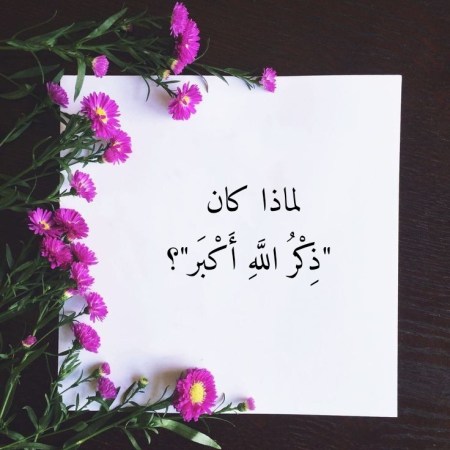 لماذا كان
"ذِكْرُ اللَّهِ أَكْبَر"؟